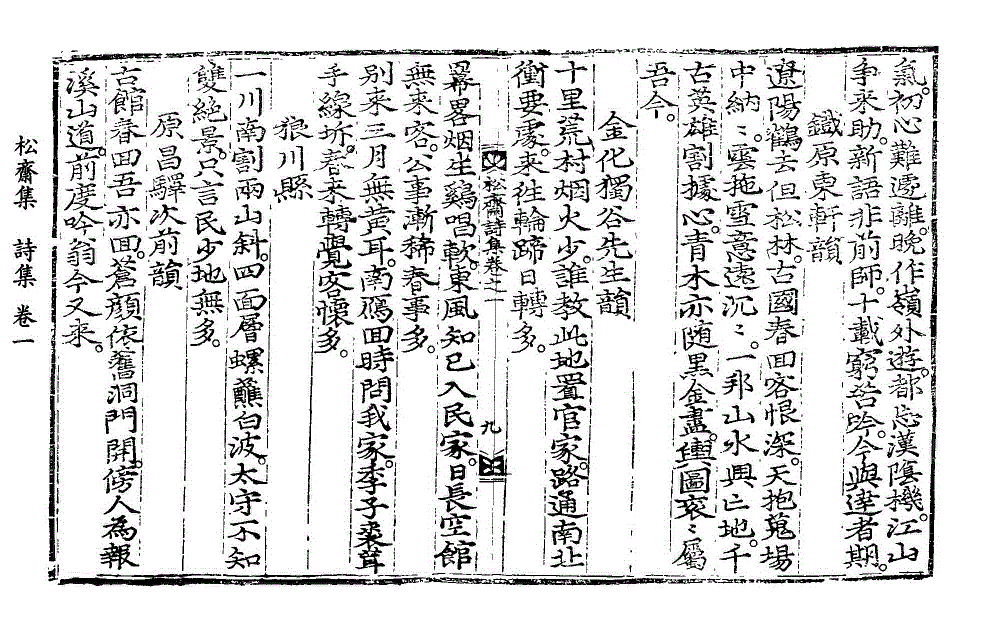 氣。初心難遽離。晩作嶺外遊。都忘漢陰機。江山
爭來助。新語非前師。十載窮吟。今與達者期。
鐵原東軒韻
遼陽鶴去但松林。古國春回客恨深。天抱蒐場
中納〻。雲拖雪意遠沉〻。一邦山水興亡地。千
古英雄割據心。青木亦随黒金盡。輿圖衮〻屬
吾今。
金化獨谷先生韻
十里荒村烟火少。誰教此地置官家。路通南北
衝要處。来徃輪蹄日轉多。
松齋詩集卷之一
九
羃畧烟生鷄唱軟。東風知已入民家。日長空館
無来客。公事漸稀春事多。
別来三月無黃耳。南鴈回時問我家。季子裘茸
手線坼。春来轉覺客懷多。
狼川縣
一川南割兩山斜。四面層螺蘸白波。太守不知
雙絶景。只言民少地無多。
原昌驛次前韻
古館春回吾亦回。蒼顔依舊洞門開。傍人為報
溪山道。前度吟翁今又来。
松齋集　詩集　卷一